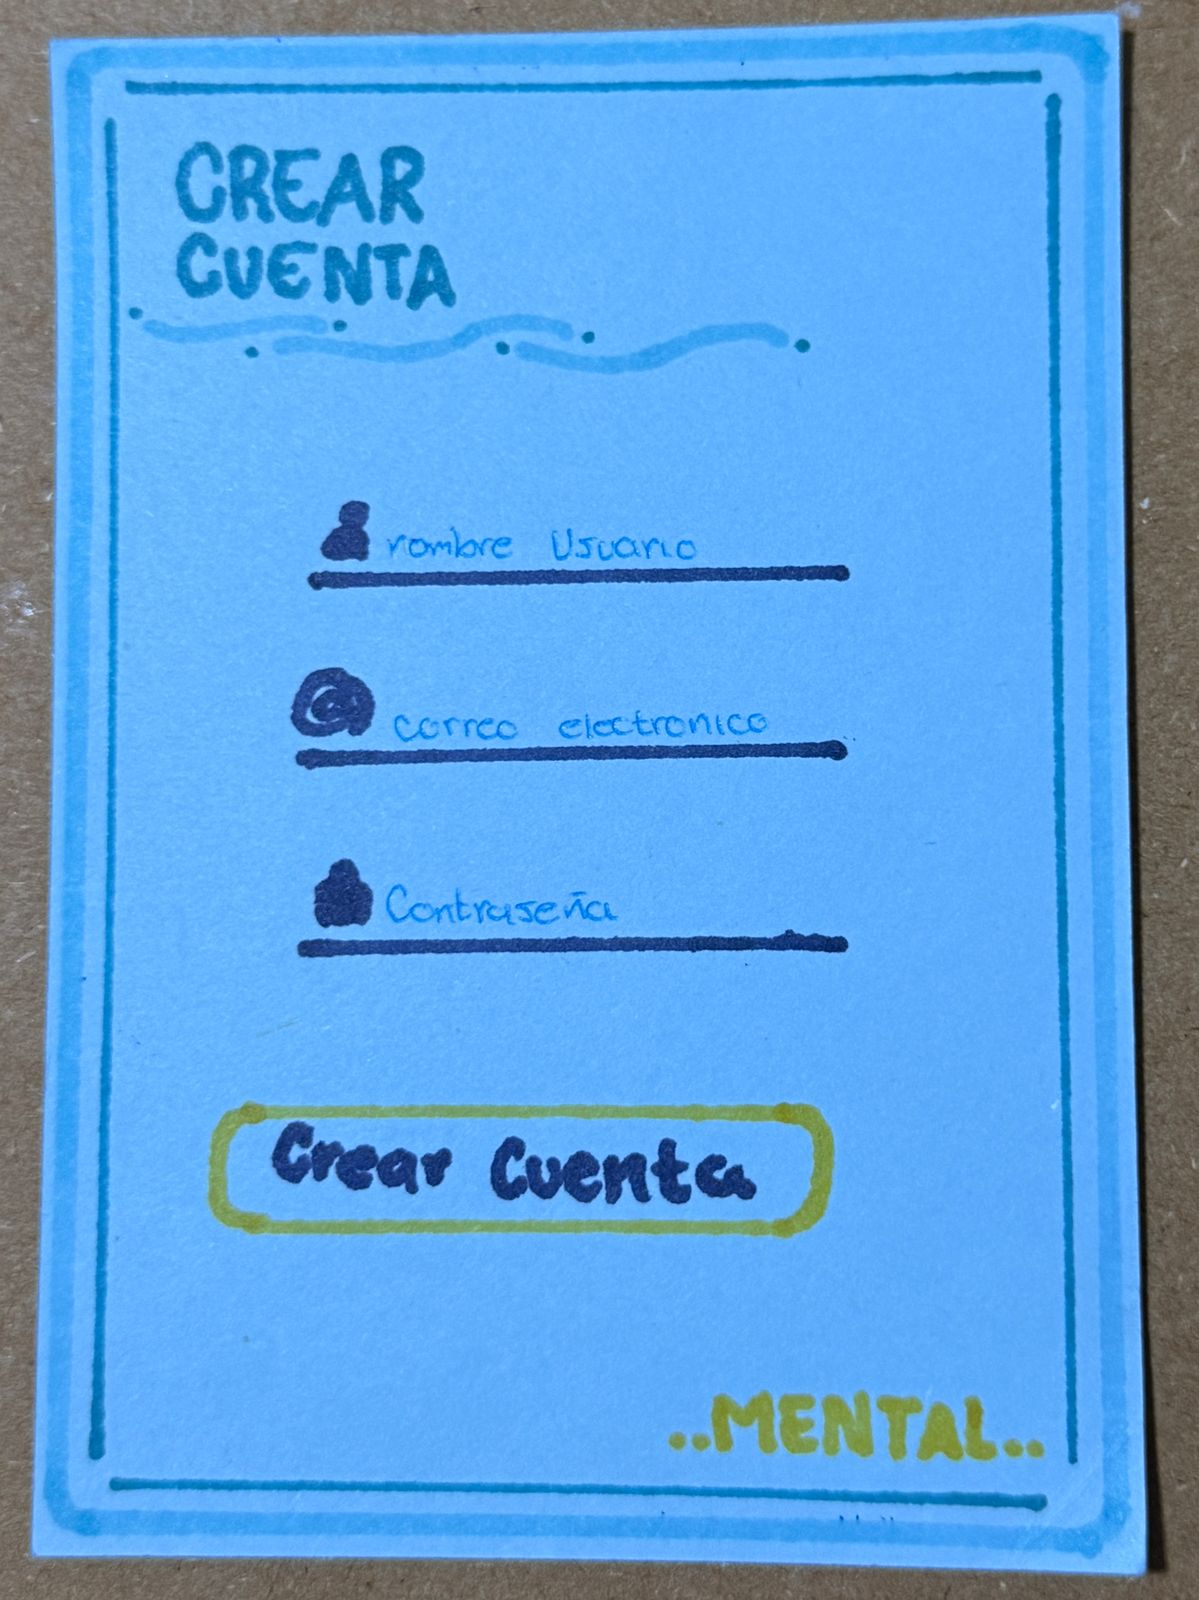 CREAR
CUENTA
nombre Usuario
@ correo electronico
Contraseña
Crear Cuenta
..MENTAL..